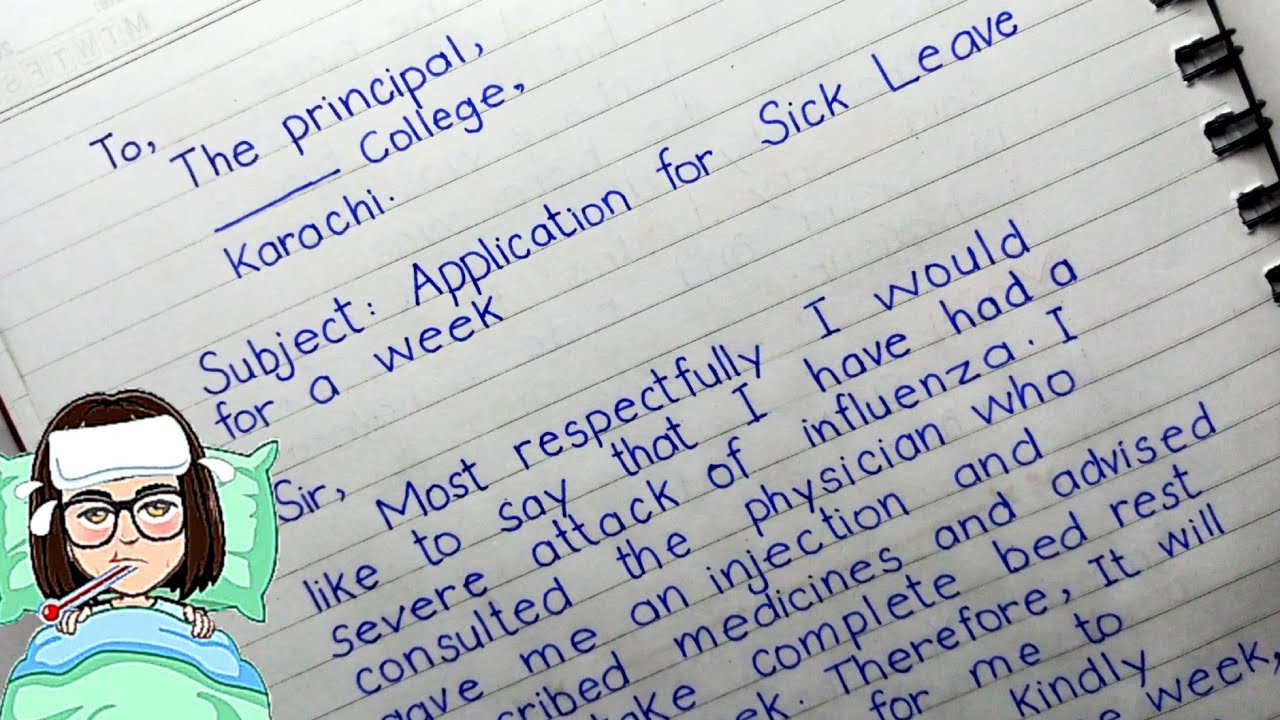 To,
The principal,
______ College,
Karachi.
Subject: Application for Sick Leave
for a week
Sir,
Most respectfully I would
like to say that I have had a
severe attack of influenza. I
consulted the physician who
gave me an injection and
medicines and advised
complete bed rest
Therefore, It will
for me to
Kindly
week,